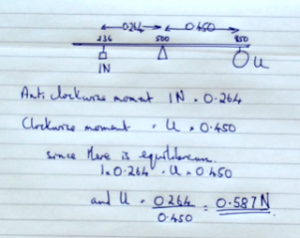 0.264 0.450
236 500 950
1N U
Anti clockwise moment 1N × 0.264
Clockwise moment = U × 0.450
since there is equilibrium
1×0.264 = U × 0.450
and U = 0.264 / 0.450 = 0.587N